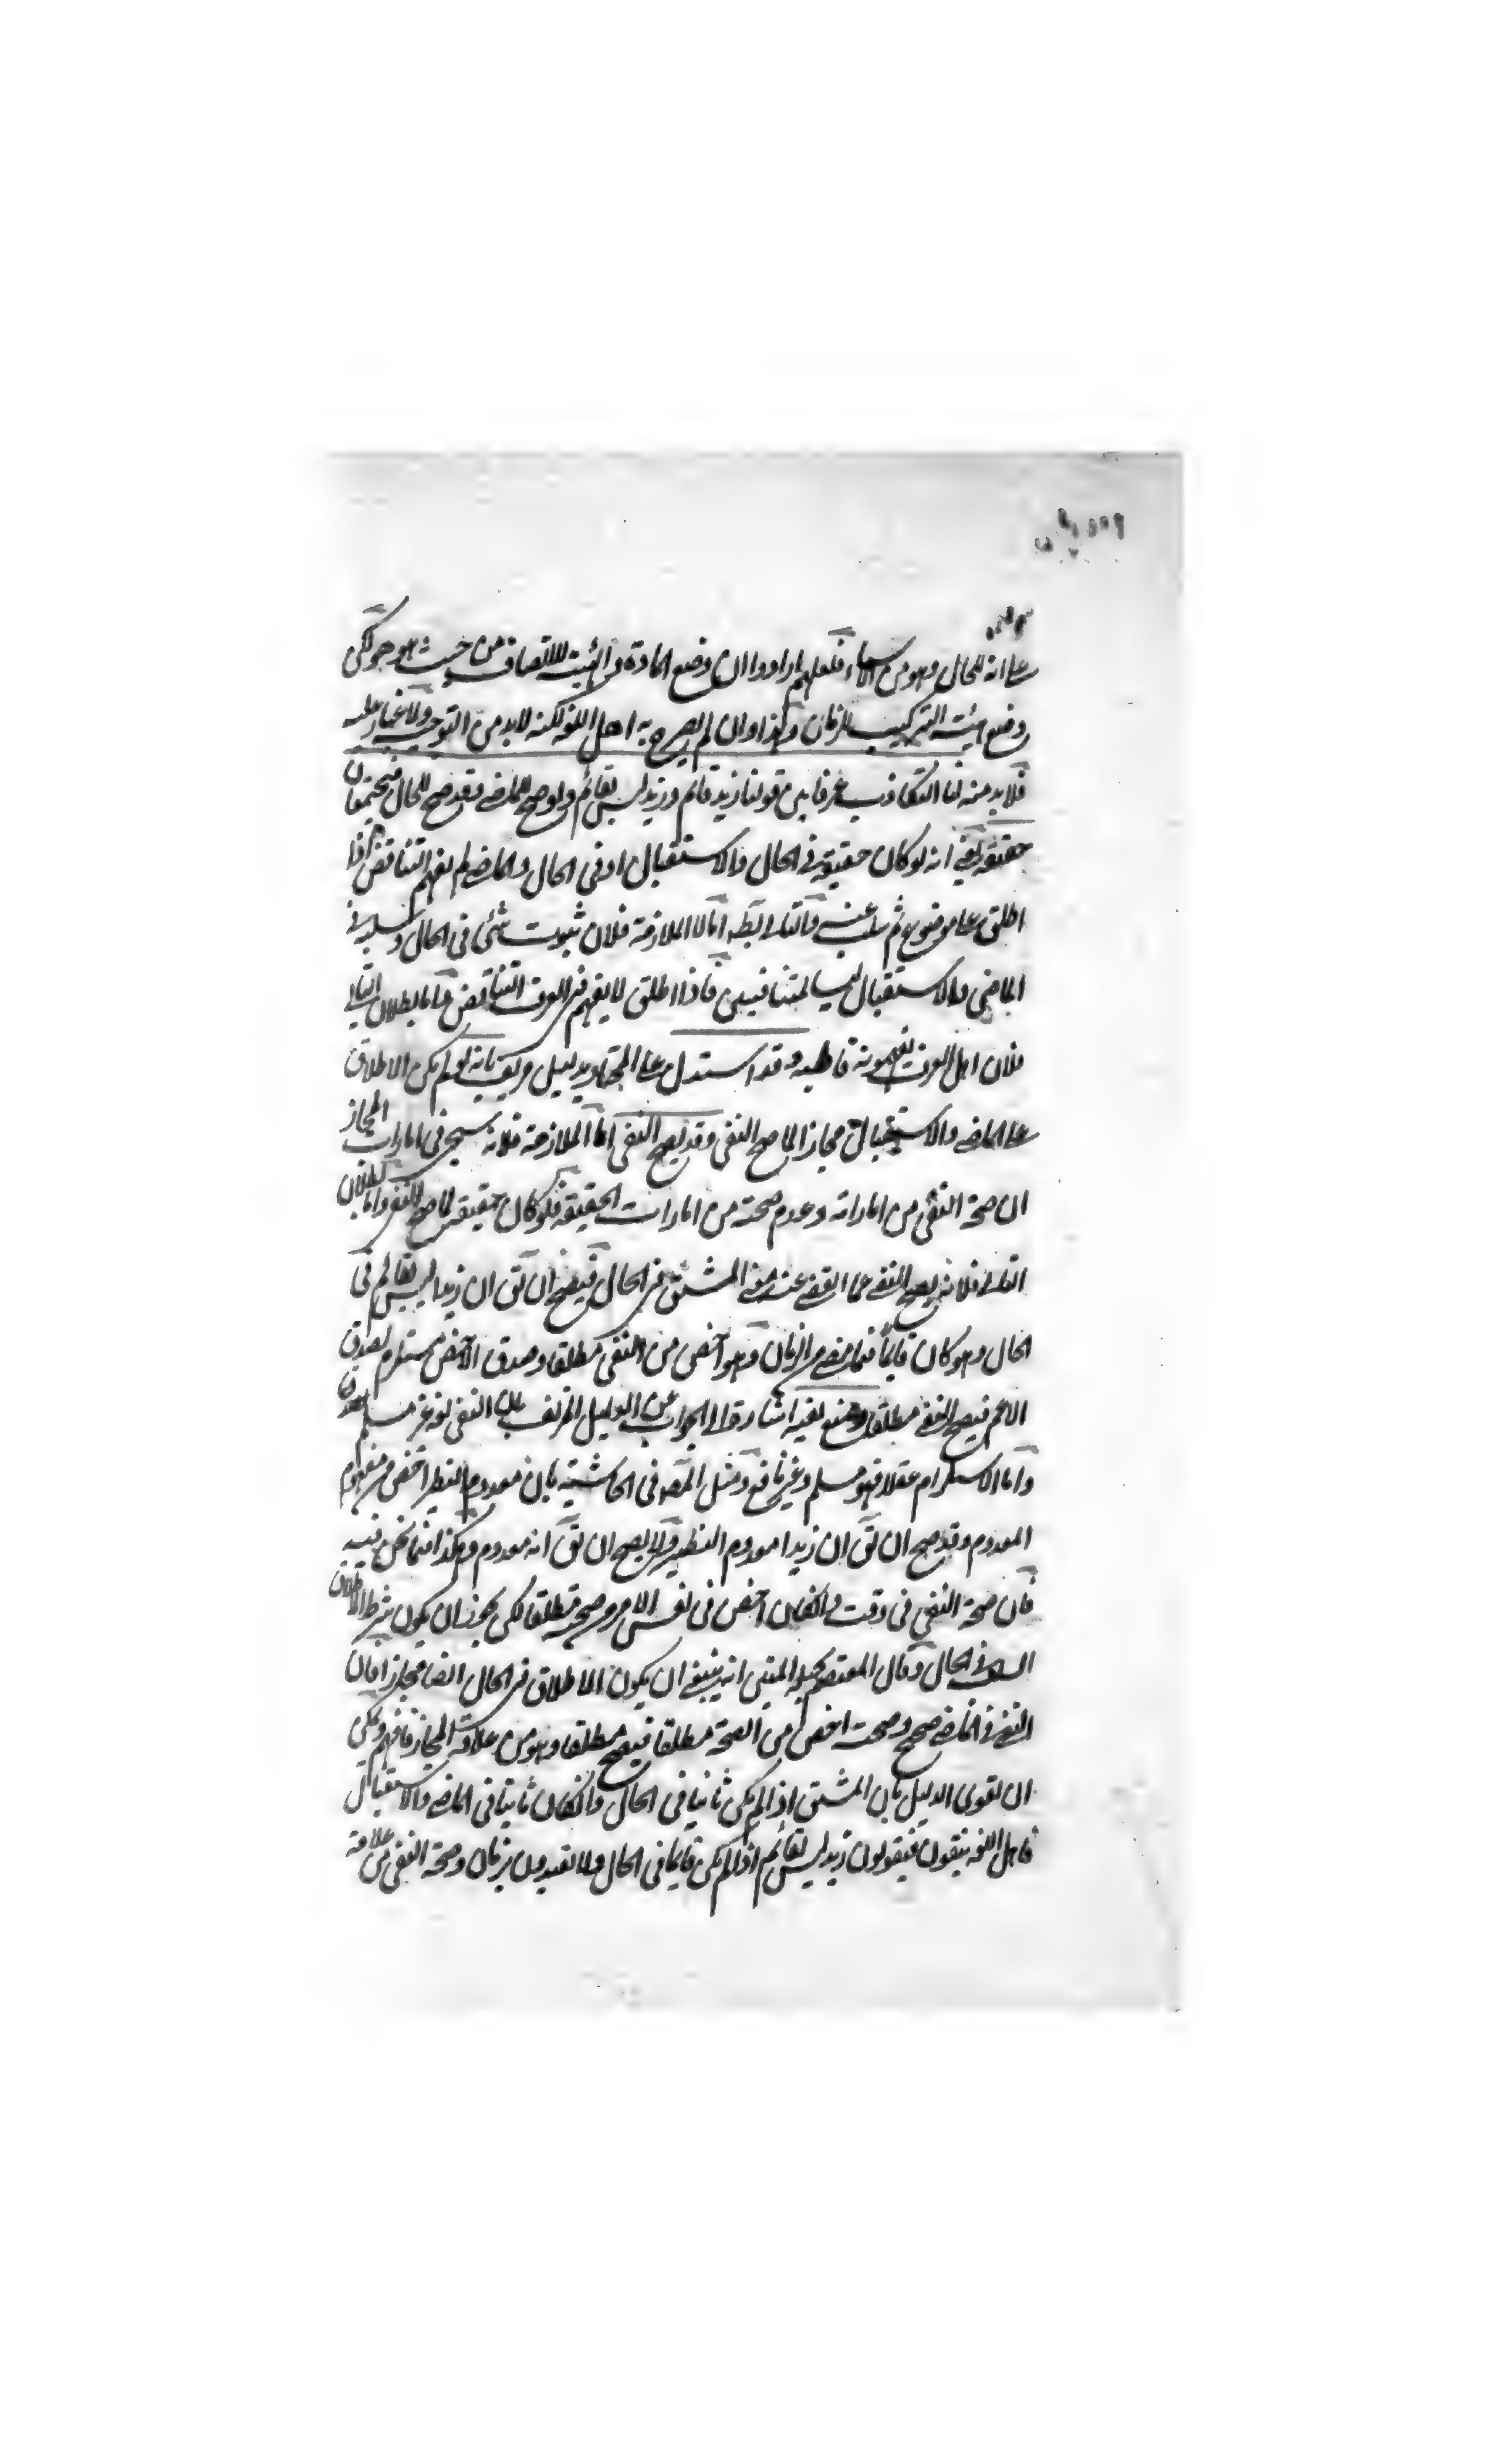 على انه للحال وهو من الاسماء فلعلهم ارادوا ان وضع المادة في الهيئة للاتصاف من حيث هو هو لكن
وضع هيئة التركيب للزمان وهذا وان لم يصرح به اهل اللغة لكنه لابد من التوجيه والاغماز عليه
فلابد منه لنا التكاذب عرفا بين قولنا زيد قائم وزيد ليس بقائم ولو صح للماضي وقد صح للحال فيجتمعان
حقيقة يعني انه لو كان حقيقة في الحال والاستقبال او في الحال والماضي لم يفهم التناقض اذا
اطلق على موضوع ثم سلب عنه والتالي بطه اما الملازمة فلان ثبوت شئ في الحال وسلبه في
الماضي والاستقبال ليسا بمتنافيين فاذا اطلق لا يفهم في العرف التناقض واما بطلان التالي
فلان اهل العرف يفهمونه قاطبة وقد استدل على المجاز بدليل مزيف بانه لو لم يكن الاطلاق
على الماضي والاستقبال مجازا لما صح النفي وقد يصح النفي اما الملازمة فلانه سيجئ في امارات المجاز
ان صحة النفي من اماراته وعدم صحته من امارات الحقيقة فلو كان حقيقة لما صح النفي واما بطلان
التالي فلانه يصح النفي عما انقضى عنه معنى المشتق في الحال فيصح ان يق ان زيدا ليس بقائم في
الحال وهو كان قايما فيما مضى من الزمان وهو اخص من النفي مطلقا وصدق الاخص مستلزم لصدق
الاعم فيصح النفي مطلقا ومنع لغيه اشارة الى الجواب عن الدليل المزيف بان النفي لغة غير مسلم
واما الاستلزام عقلا فهو مسلم وغير نافع ومثل المصه في الحاشية بان معدوم النظير اخص من مفهوم
المعدوم وقد صح ان يق ان زيدا معدوم النظير ولا يصح ان يق انه معدوم وهكذا فيما نحن فيه
فان صحة النفي في وقت وان كان اخص في نفس الامر من صحته مطلقا لكن يجوز ان يكون شرط الاطلاق
السلب في الحال وقال المعتصم بحبله المتين انه ينبغي ان يكون الاطلاق في الحال ايضا مجازا فان
النفي في الماضي صحيح وصحته اخص من الصحة مطلقا فيصح مطلقا وهو من علاقة المجاز فافهم ويمكن
ان يقوى الدليل بان المشتق اذا لم يكن ثابتا في الحال وان كان ثابتا في الماضي والاستقبال
فاهل اللغة ينفون فيقولون زيد ليس بقائم اذا لم يكن قايما في الحال ولا يقيدون بزمان وصحة النفي من علامة